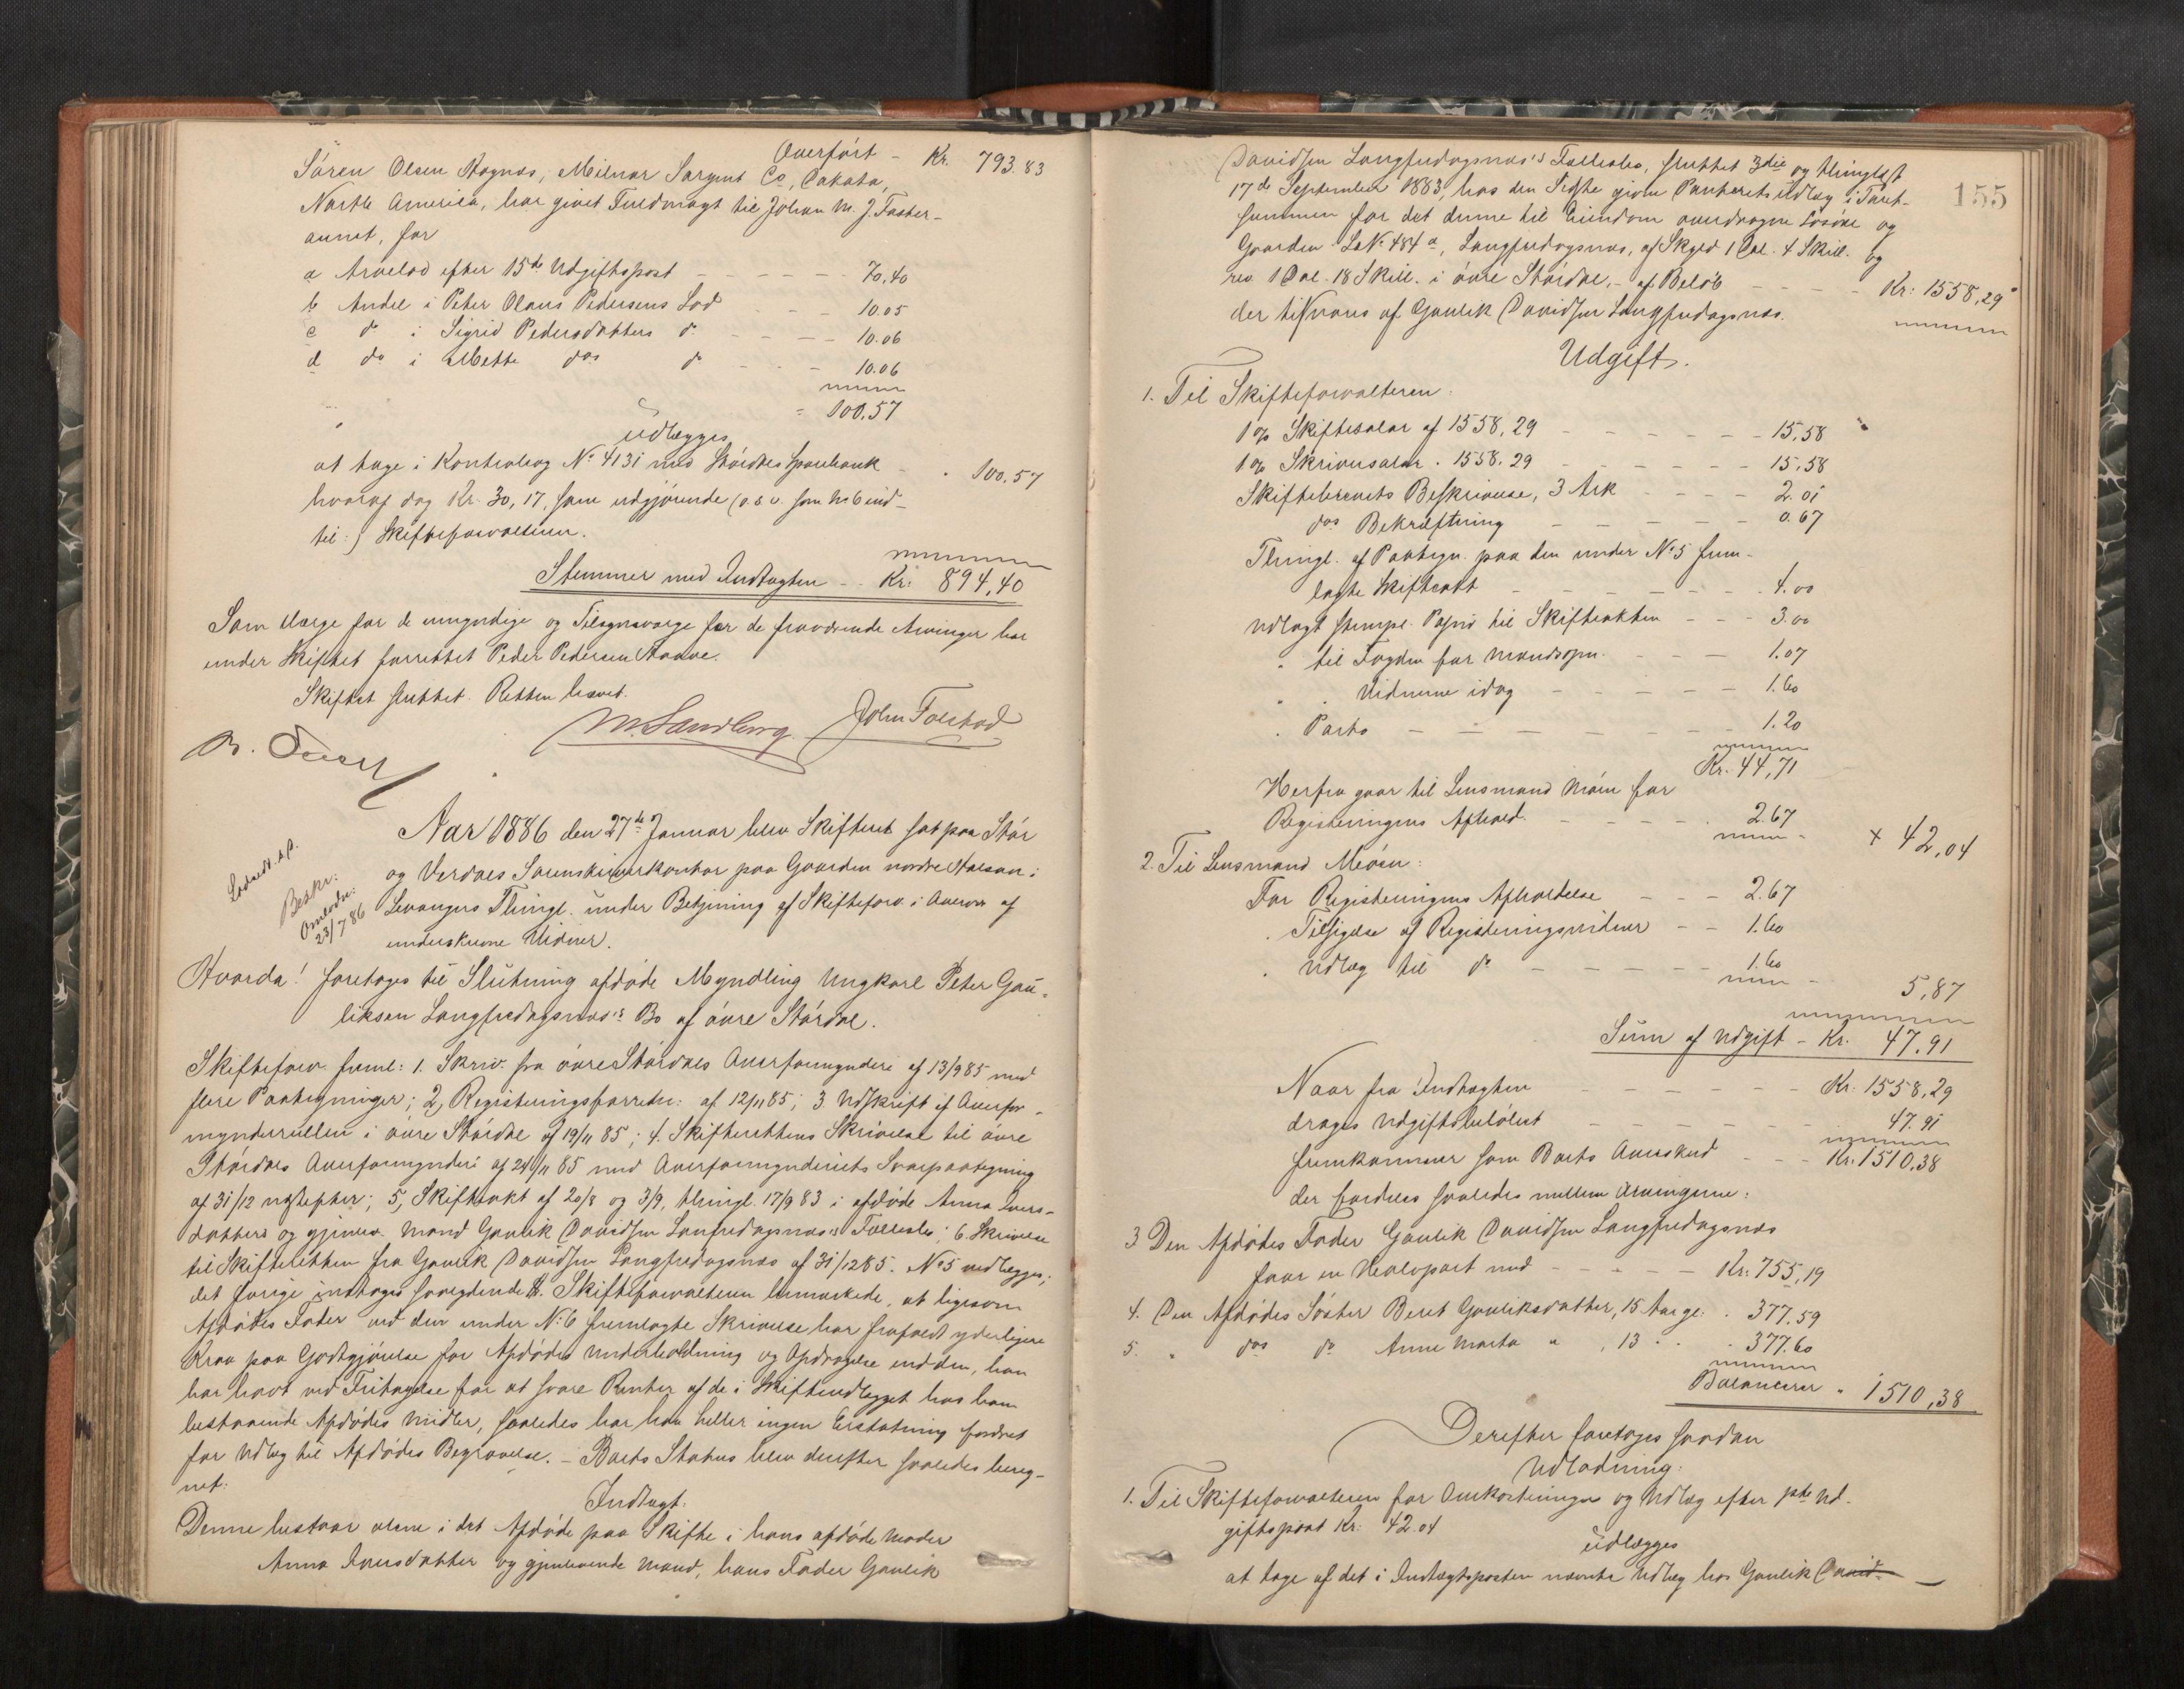 Overført - Kr. 793.83
Sören Olsen Rognes, Milnor Sargent Co, Dakota,
North America, har givet Fuldmagt til Johan M. J. Faster-
aunet, for
a Arvelod efter 15de Udgiftspost - - - - - 70,40
b Andel i Peter Olaus Pedersens Lod - - 10.05
c do i Sigrid Pedersdatters do - - - 10.06
d do i Mette das do - - - 10.06
= 100.57
udlægges
at tage i Kontrabog No 4131 med Stördalens Sparebank - " 100.57
hvoraf dog Kr. 30,17, som udgjörende
til :/ Skifteforvalteren.
Stemmer med Indtægten - - Kr: 894,40
Som Værge for de umyndige og Tilsynsværge for de fraværende Arvinger har
under Skiftet forrettet Peder Pedersen
Skiftet sluttet. Retten hævet.
M. Sandberg. John Folstad
Aar 1886 den 27de Januar blev Skifteret sat paa Stör
og Værdals Sorenskriverkontor paa Gaarden nordre Halsan i
Levangers Thingl. under Betjening af Skifteforv. i Overvær af
underskrevne Vidner.
Beskr:
23/7 86
Hvorda! foretoges til Slutning afdöde Myndling Ungkarl Peter Gau-
liksen Langfredagsnæs's Bo af övre Stördal.
Skifteforv. freml: 1. Skriv. fra övre Stördals Overformynderi af 13/9 85 med
flere Paategninger; 2, Registreringsforretn: af 12/11 85; 3 Udskrift af Overfor-
mynderrullen i övre Stördal af 19/11 85; 4. Skifterettens Skrivelse til övre
Stördals Overformynderi af 24/11 85 med Overformynderiets Svarpaategning
af 31/12 næstefter; 5, Skifteakt af 20/8 og 3/9, thingl. 17/9 83 i afdöde Anna Ivers-
datters og gjenlev. Mand Gaulik Davidsen Langfredagsnæs's Fællesbo; 6. Skrivelse
til Skifteretten fra Gaulik Davidsen Langfredagsnæs af 31/12 85. No 5 vedlægges;
det förige indtages saalydende Skifteforvalteren bemærkede, at ligesom
Afdödes Fader ved den under No 6 fremlagte Skrivelse har frafaldt yderligere
Krav paa Godtgjörelse for Afdödes Underholdning og Opdragelse end den, han
har havt ved Fritagelse for at svare Renter af de i Skifteudlægget hos ham
bestaaende Afdödes Midler, saaledes har han heller ingen Erstatning fordret
for Udlæg til Afdödes Begravelse. - Boets Status blev derefter saaledes bereg-
net:
Indtægt:
Denne bestaar alene i det Afdöde paa Skifte i hans afdöde Moder
Anna Iversdatter og gjenlevende Mand, hans Fader Gaulik
155
Davidsen Langfredagsnæs's Fællesbo, sluttet 3die og thinglæst
17de September 1883, hos den Sidste givne Panterets Udlæg i Taxt-
summen for det denne til Eiendom overdragne Lösöre og
Gaarden LNo 484a, Langfredagsnæs, af Skyld 1 Dal. 4 Skill. og
rev. 1 Dal. 18 Skill. i övre Stördal, - af Belöb - - - - Kr: 1558,29
der tilsvares af Gaulik Davidsen Langfredagsnæs.
Udgift.
1. Til Skifteforvalteren:
1 % Skiftesalær af 1558,29 - - - - - 15,58
1 % Skriversalær " 1558.29 - - - - - 15,58
Skiftebrevets Beskrivelse, 3 Ark - - - - 2.01
das Bekræftning - - - - - 0.67
Thingl. af Paategn. paa den under No 5 frem-
lagte Skifteakt - - - - - - - 4.00
Udlagt stempl. Papir til Skifteakten - - - 3.00
" til Fogden for Mandsopn. - - - - 1.07
" " Vidnerne idag - - - - - 1.60
" Porto - - - - - - 1.20
Kr. 44,71
Herfra gaar til Lensmand Moen for
Registreringens Afhold. - - - - - 2.67
+ 42,04
2. Til Lensmand Moen:
For Registreringens Afholdelse - - - 2.67
" Tilsigelse af Registreringsvidner - - 1.60
" Udlæg til do - - - - - 1.60
5,87
Sum af Udgift - Kr. 47.91
Naar fra Indtægten - - - - - Kr. 1558,29
drages Udgiftsbelöbet - - - - - 47.91
fremkommer som Boets Overskud - - - Kr. 1510,38
der fordeles saaledes mellem Arvingerne:
3 Den Afdödes Fader Gaulik Davidsen Langfredagsnæs
faar en Halvpart med - - - - - Kr. 755,19
4. Den Afdödes Söster Beret Gauliksdatter, 15 Aar gl: " 377.59
5. " das do Anne Marta " , 13 " " 377.60
Balancerer " 1510,38
Derefter foretoges saadan
Udlodning:
1. Til Skifteforvalteren for Omkostninger og Udlæg efter 1ste Ud-
giftspost Kr. 42.04
udlægges
at tage af det i Indtægtsposten nævnte Udlæg hos Gaulik David-